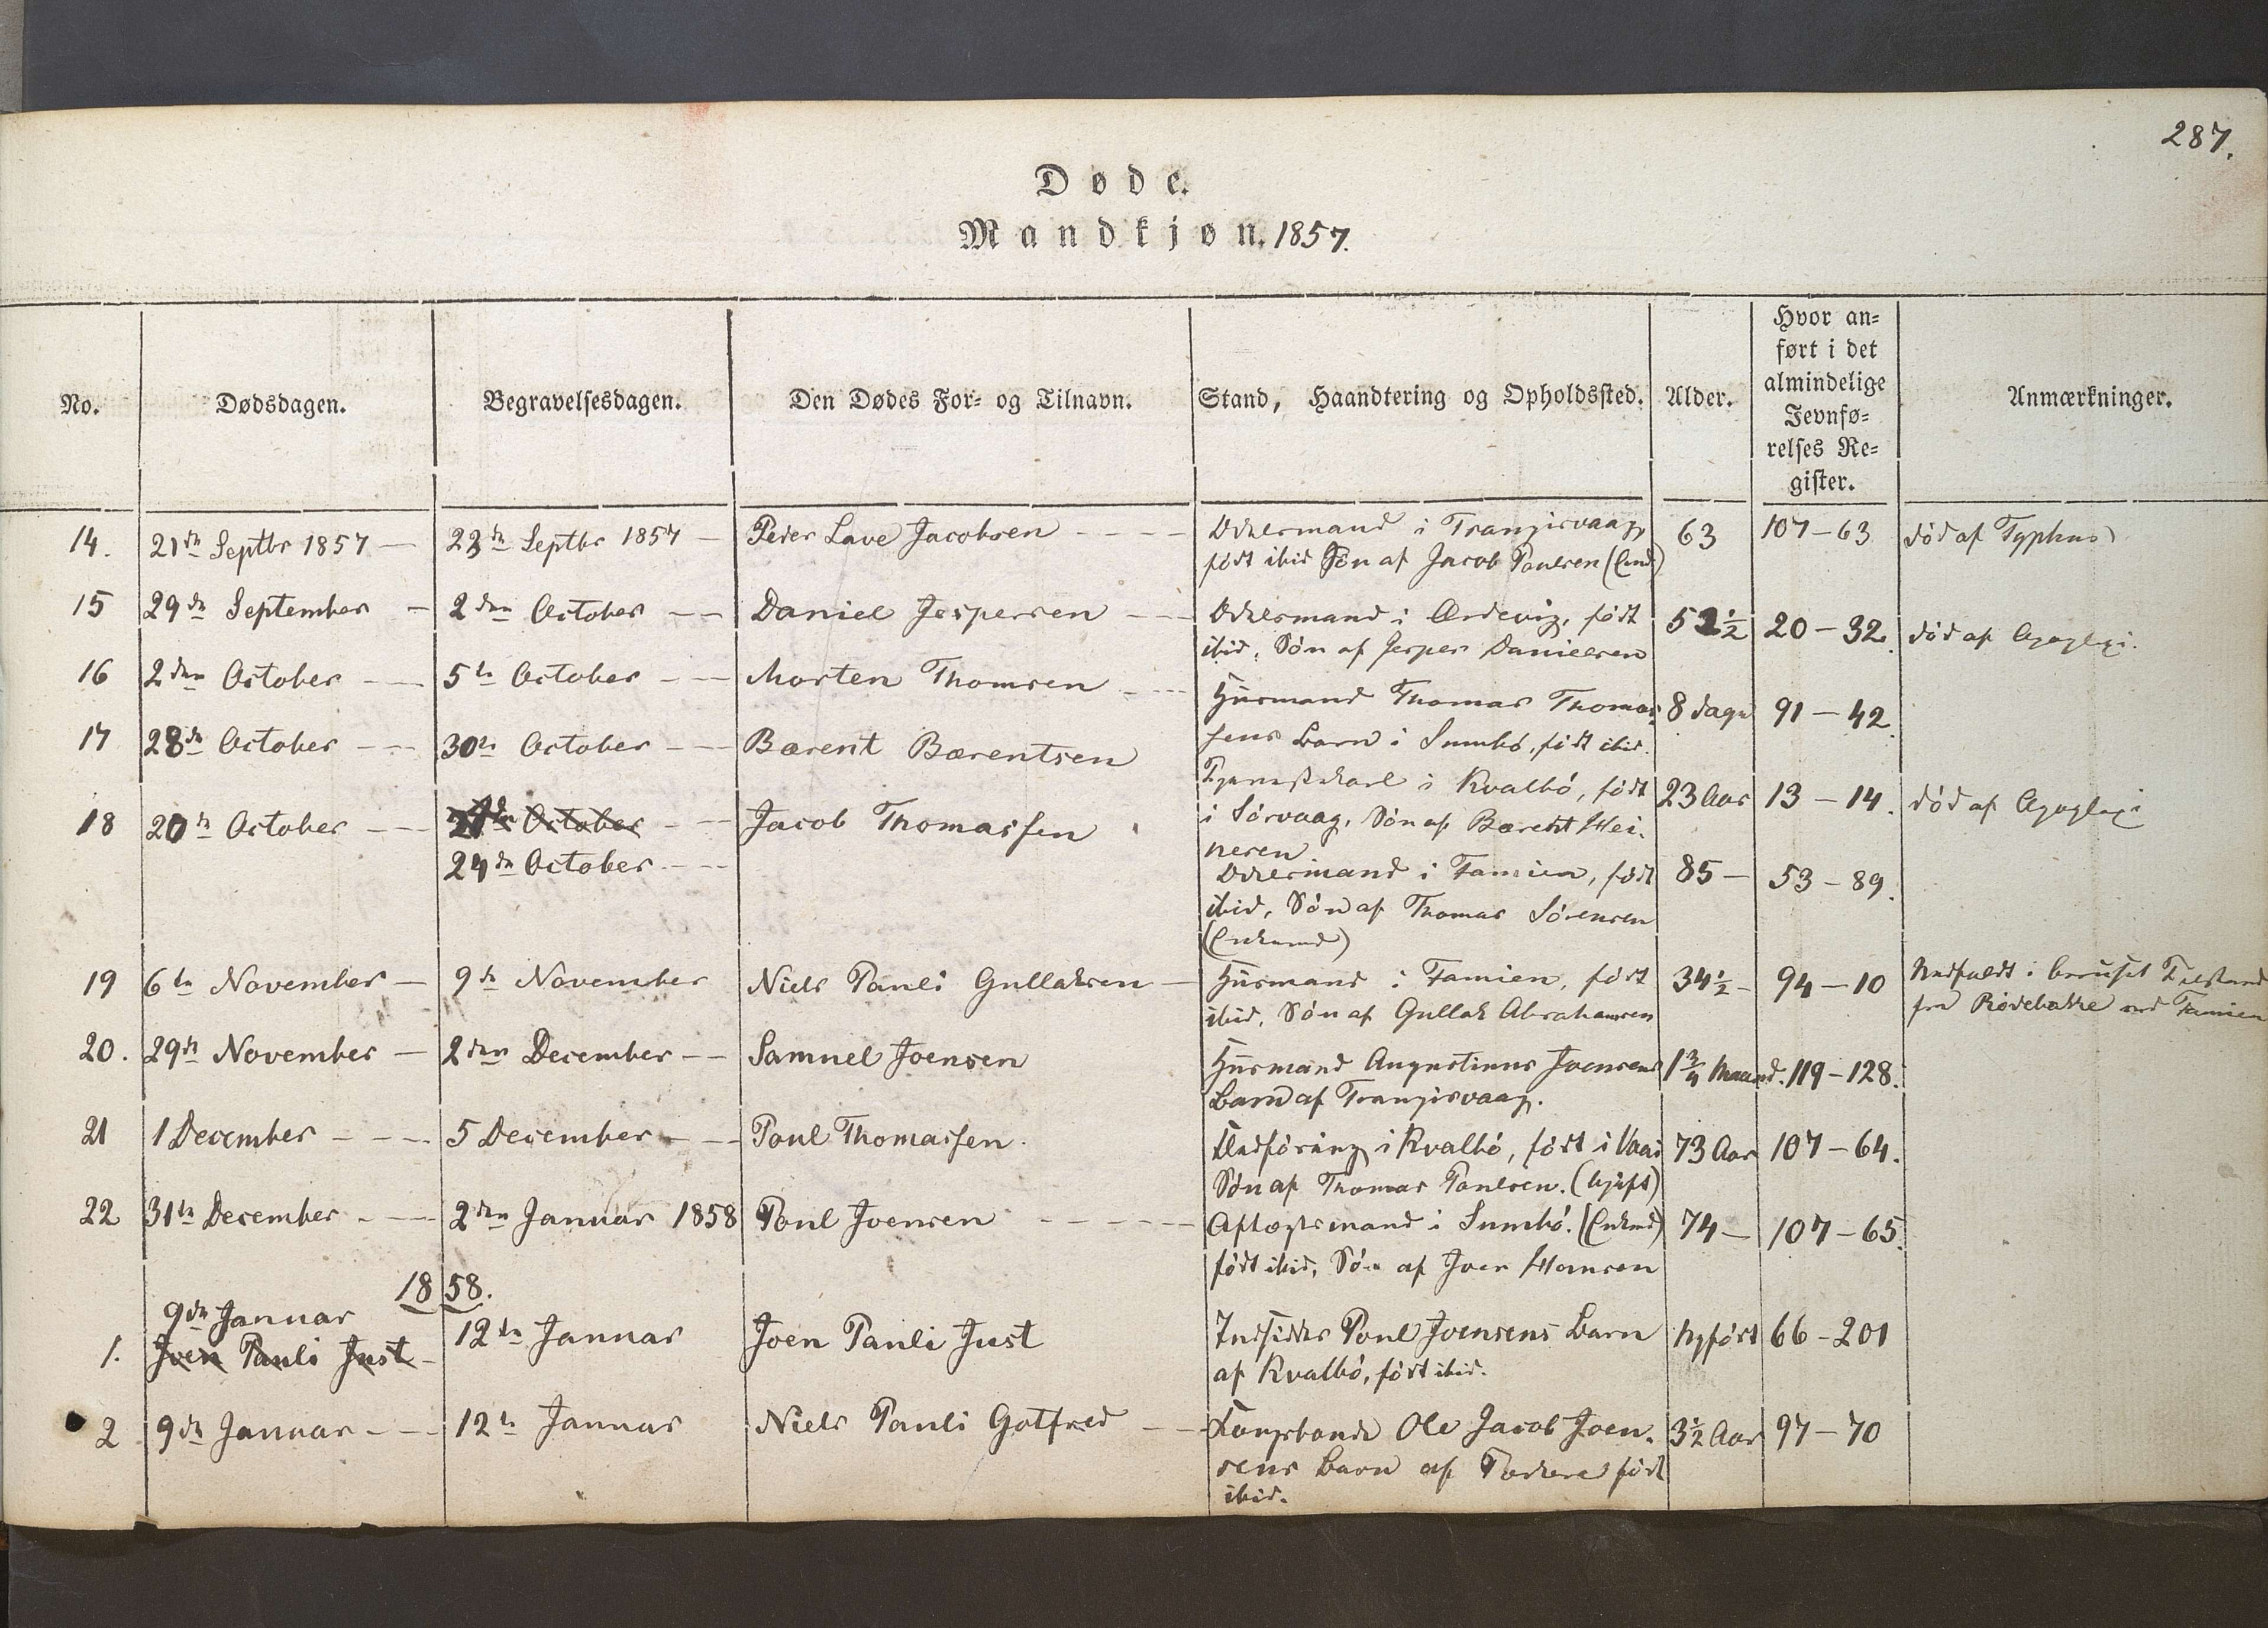 287.
Døde.
Mandkjøn. 1857.
No.
Dødsdagen.
Begravelsesdagen.
Den Dødes For- og Tilnavn.
Stand, Haandtering og Opholdssted.
Alder.
Hvor an-
ført i det
almindelige
Jevnfø-
relses Re-
gister.
Anmærkninger.
14. 21de Septbr 1857 — 23de Septbr 1857 — Peder Lave Jacobsen - - - - Odelsmand i Trangisvaag, 63 107-63 død af Typhus
født ibid Søn af Jacob Poulsen (Enk)
15 29de September — 2den October — Daniel Jespersen — Odelsmand i Ördevig, født 52½ 20-32. død af Apoplexi.
ibid, Søn af Jesper Danielsen
16 2den October — 5te October — Morten Thomsen - - - Huusmand Thomas Thomas- 8 dage 91-42.
sens Barn i Sumbö, født ibid.
17 28de October — 30te October — Bærent Bærentsen Tjenestekarl i Kvalbó, født 23 Aar 13-14. død af Apoplexi
i Sórvaag, Søn af Bærent Hei-
nesen
18 20de October — 21de October — Jacob Thomassen Odelsmand i Famien, født 85 — 53-89.
24de October - - ibid, Søn af Thomas Sörensen
(Enkemd)
19 6te November — 9de November Niels Pauli Gullaksen — Huusmand i Famien, født 34½ - 94-10 Nedfaldt i beruset Tilstand
ibid, Søn af Gullak Abrahamsen fra Rødebakke ved Famien
20. 29de November — 2den December — Samuel Joensen Huusmand Augustinus Joensens 1¾ Maaned. 119-128.
Barn af Trangisvaag.
21 1 December - - - 5 December - - Poul Thomassen. Fledføring i Kvalbó, født i Vaai 73 Aar 107-64.
Søn af Thomas Poulsen. (Gift)
22 31te December - - - 2den Januar 1858 Poul Joensen - - - - - Aftægtsmand i Sumbó. (Enkmd) 74 — 107-65.
født ibid, Søn af Joen
1858.
9de Januar
1. Joen Pauli Just - 12te Januar Joen Pauli Just Indsidder Poul Joensens Barn Nyfødt 66-201
af Kvalbó, født ibid.
2 9de Januar - - - 12te Januar Niels Pauli Gotfred — Kongsbonde Ole Jacob Joen- 3½ Aar 97-70
sens Barn af Porkere født
ibid.